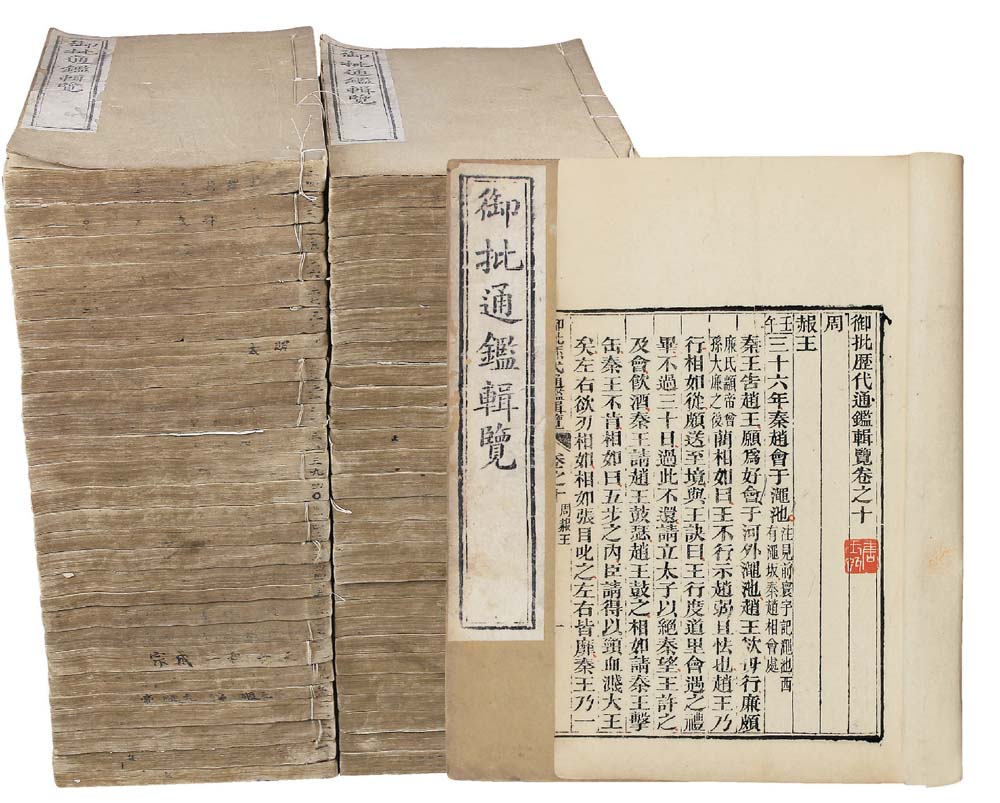 御批通鑑輯覽
御批通鑑輯覽
御批通鑑輯覽
御批歷代通鑑輯覽卷之十
周
赧王
壬午三十六年秦趙會于澠池注見前寰宇記澠池西有澠坂秦趙相會處
秦王告趙王願爲好會于河外澠池趙王欲毋行廉頗
廉氏顓帝曾孫大廉之後藺相如曰王不行示趙弱且怯也趙王乃
行相如從頗送至境與王訣曰王行度道里會遇之禮
畢不過三十日過此不還請立太子以絶秦望王許之
及會飲酒秦王請趙王鼓瑟趙王鼓之相如請秦王擊
缶秦王不肯相如曰五步之內臣請得以頸血濺大王
矣左右欲刃相如相如張目叱之左右皆靡秦王乃一
御批歷代通鑑輯覽 卷之十 周赧王 一